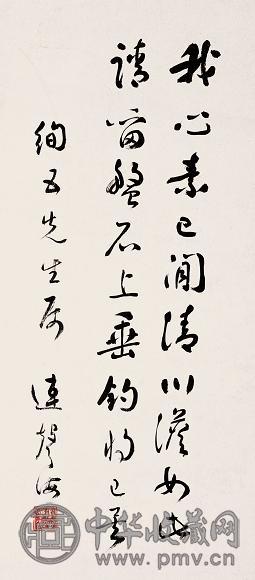 我心素已閒清川澹如此
請留盤石上垂釣将已矣
絢五先生属 連聲海
中华收藏网
www.pmv.cn